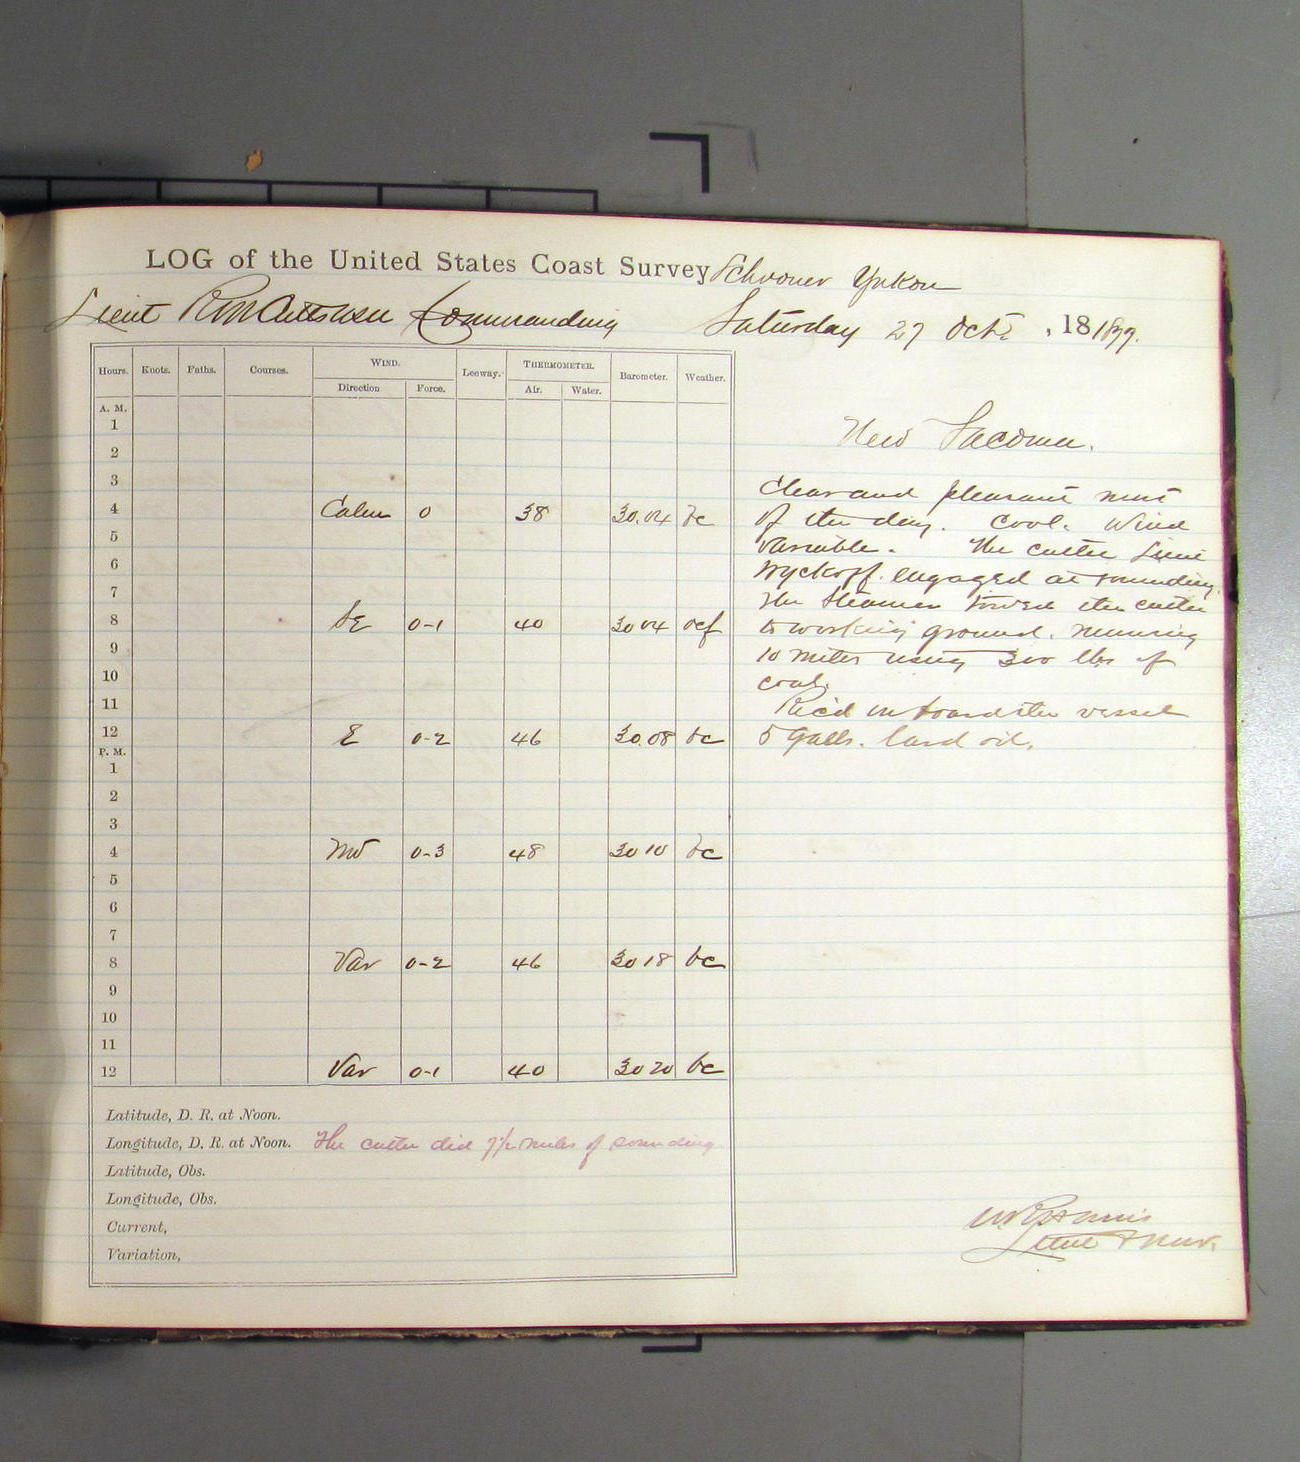 LOG of the United States Coast Survey Schooner Yukon
Lieut Commanding Saturday 27 Oct , 18 1877.
Hours. Knots. Faths. Courses. WIND. Direction Force. Leeway. THERMOMETER. Air. Water. Barometer. Weather.
A. M.
1
2
3
4 Calm 0 38 30.04 bc
5
6
7
8 SE 0-1 40 30 04 ocf
9
10
11
12 E 0-2 46 30.08 bc
P. M.
1
2
3
4 NW 0-3 48 30 10 bc
5
6
7
8 Var 0-2 46 30 18 bc
9
10
11
12 Var 0-1 40 30 20 bc
Latitude, D. R. at Noon.
Longitude, D. R. at Noon. The cutter did 7½ miles of sounding
Latitude, Obs.
Longitude, Obs.
Current,
Variation,
New Tacoma.
Clear and pleasant most
of the day. Cool. Wind
variable. The cutter Lieut
Wyckoff. engaged at sounding.
The steamer towed the cutter
to working ground. running
10 miles using 300 lbs of
coal.
Rec'd on board the vessel
5 galls. lard oil.
Lieut